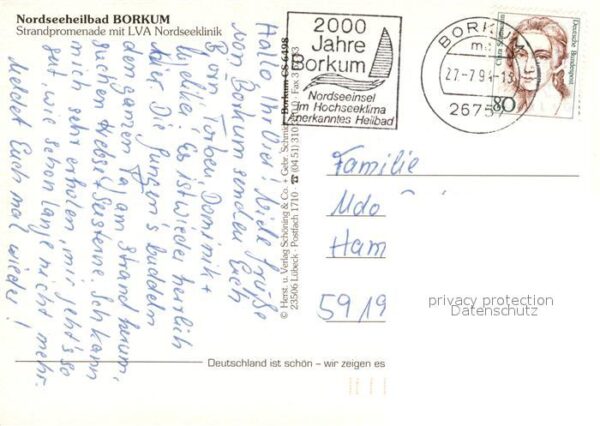 Nordseeheilbad BORKUM
Strandpromenade mit LVA Nordseeklinik
Hallo Ihr Vier! Viele Grüße
von Borkum senden Euch
Björn, Torben, Dominik +
Es ist wieder herrlich
hier. Die Jungen's buddeln
den ganzen Tag am Strand herum,
suchen Krebse + Seesterne. Ich kann
mich sehr erholen, mir geht's so
gut, wie schon lange nicht mehr.
Meldet Euch mal wieder!
© Herst. u. Verlag Schöning & Co. + Gebr. Schmidt · Borkum CS 6498
23506 Lübeck · Postfach 1710 · ☎ (0451) 310
2000
Jahre
Borkum
Nordseeinsel
im Hochseeklima
Anerkanntes Heilbad
BORKUM
27.-7.94-15
2675
Deutsche Bundespost
80
Familie
Udo
Ham
5919
privacy protection
Datenschutz
Deutschland ist schön – wir zeigen es